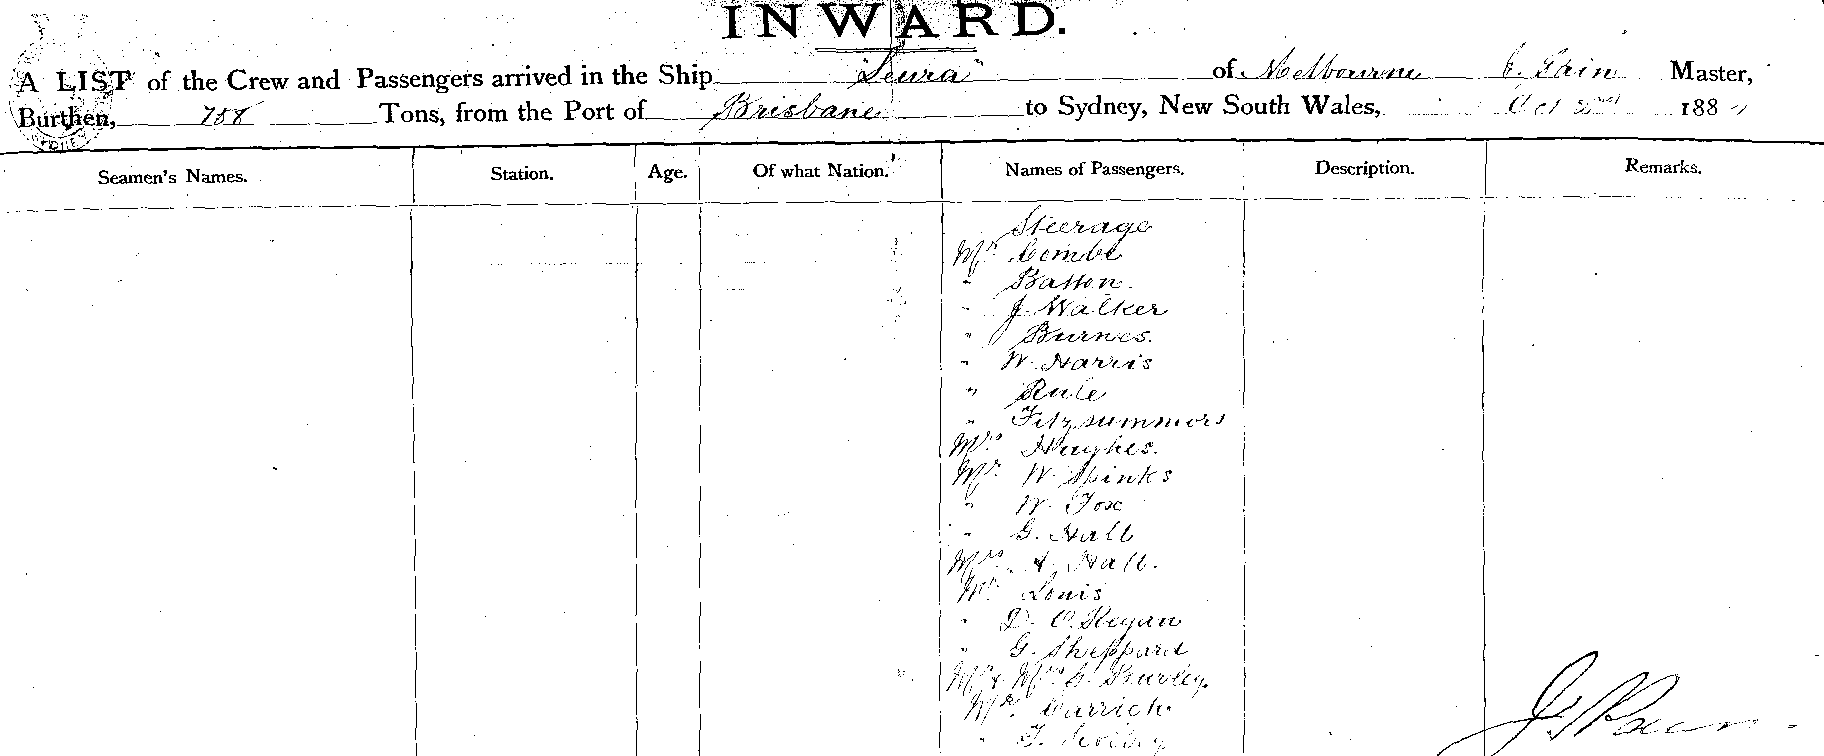 INWARD.
A LIST of the Crew and Passengers arrived in the Ship "Leura" of Melbourne Master,
Burthen, 758 Tons, from the Port of Brisbane to Sydney, New South Wales, Oct 188
Seamen's Names. Station. Age. Of what Nation. Names of Passengers. Description. Remarks.
Steerage
Mr Combe
" Batton.
" J. Walker
" Burnes.
" W. Harris
" Rule
" Fitzsummors
Mrs Hughes.
Mr. W. Spinks
" W. Fox
" G. Hall
Mrs. A. Hall.
Mr. Louis
" D. O. Regan
" G. Sheppard
Mr & Mrs Burley.
Mr.